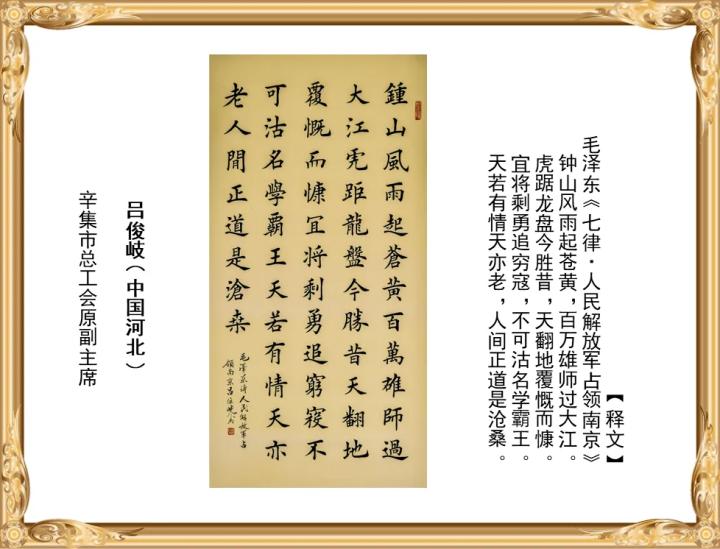 【释文】
毛泽东《七律·人民解放军占领南京》
钟山风雨起苍黄，百万雄师过大江。
虎踞龙盘今胜昔，天翻地覆慨而慷。
宜将剩勇追穷寇，不可沽名学霸王。
天若有情天亦老，人间正道是沧桑。
鍾山風雨起蒼黄百萬雄師過
大江虎距龍盤今勝昔天翻地
覆慨而慷宜将剩勇追窮寇不
可沽名學霸王天若有情天亦
老人間正道是滄桒
毛澤东诗人民解放军占
领南京吕俊岐书
吕俊岐（中国河北）
辛集市总工会原副主席